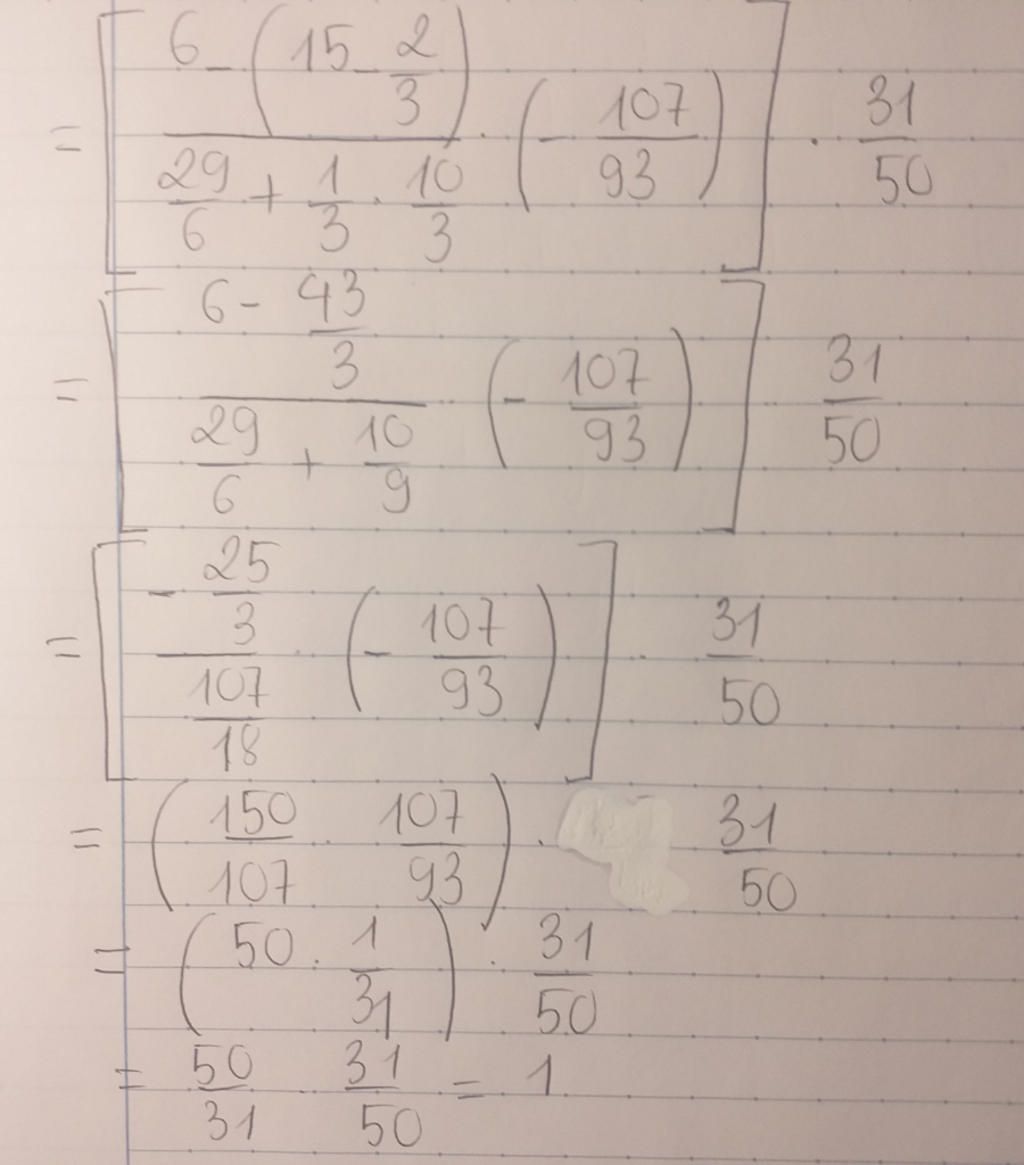 = [ (6 - (15 - 2/3)) / (29/6 + 1/3 · 10/3) · (- 107/93) ] · 31/50
= [ (6 - 43/3) / (29/6 + 10/9) · (- 107/93) ] · 31/50
= [ (- 25/3) / (107/18) · (- 107/93) ] · 31/50
= ( 150/107 · 107/93 ) · 31/50
= ( 50 · 1/31 ) · 31/50
= 50/31 · 31/50 = 1